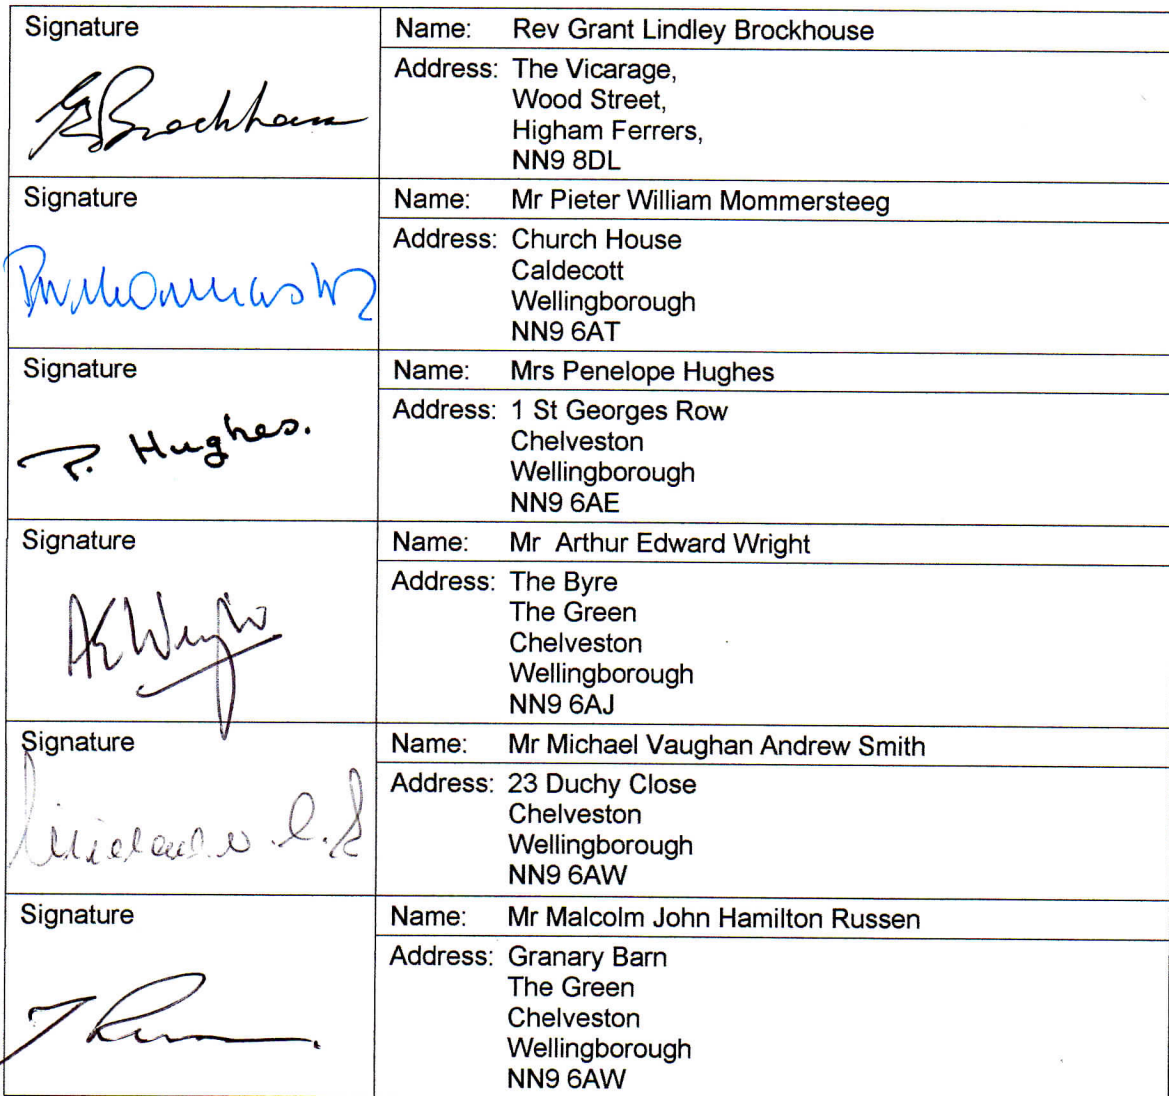 Signature
Name: Rev Grant Lindley Brockhouse
Address: The Vicarage,
Wood Street,
Higham Ferrers,
NN9 8DL
Signature
Name: Mr Pieter William Mommersteeg
Address: Church House
Caldecott
Wellingborough
NN9 6AT
Signature
P. Hughes.
Name: Mrs Penelope Hughes
Address: 1 St Georges Row
Chelveston
Wellingborough
NN9 6AE
Signature
AEWright
Name: Mr Arthur Edward Wright
Address: The Byre
The Green
Chelveston
Wellingborough
NN9 6AJ
Signature
Name: Mr Michael Vaughan Andrew Smith
Address: 23 Duchy Close
Chelveston
Wellingborough
NN9 6AW
Signature
Name: Mr Malcolm John Hamilton Russen
Address: Granary Barn
The Green
Chelveston
Wellingborough
NN9 6AW